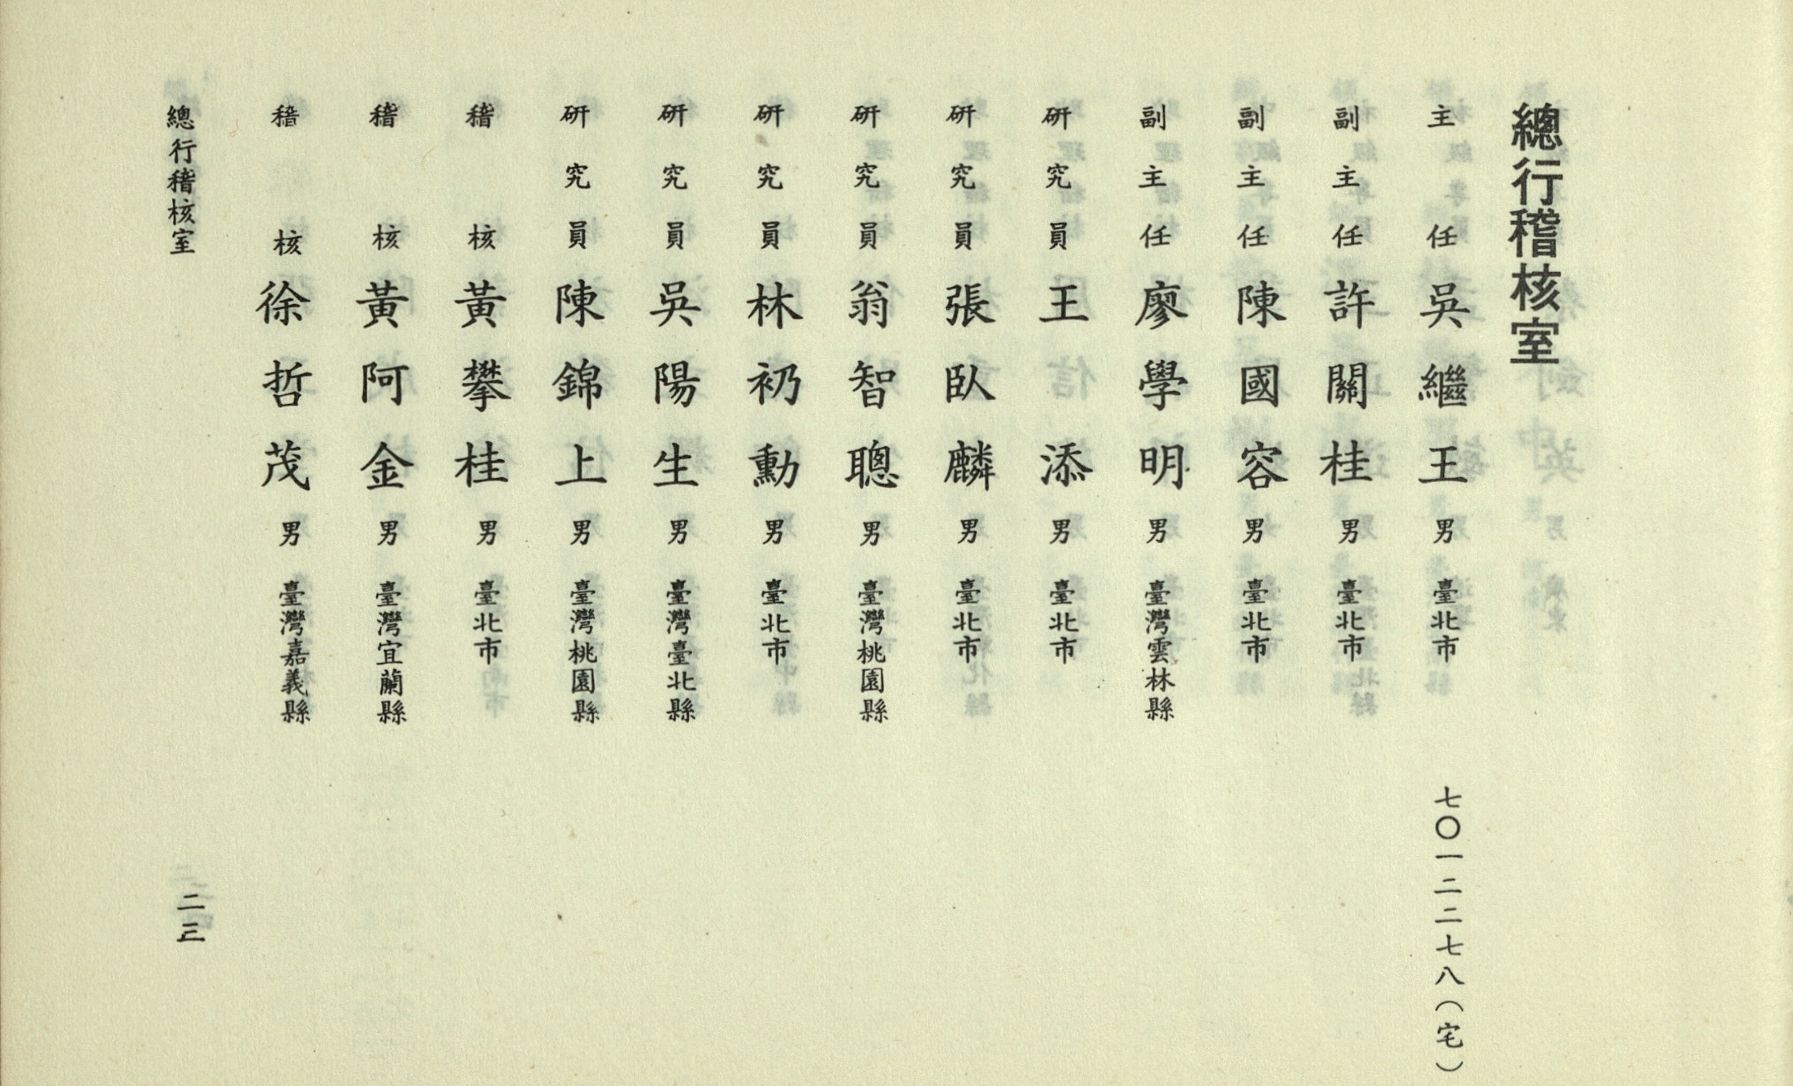 總行稽核室
主任吳繼王男臺北市七〇一二二七八(宅)
副主任許關桂男臺北市
副主任陳國容男臺北市
副主任廖學明男臺灣雲林縣
研究員王添男臺北市
研究員張臥麟男臺北市
研究員翁智聰男臺灣桃園縣
研究員林礽勳男臺北市
研究員吳陽生男臺灣臺北縣
研究員陳錦上男臺灣桃園縣
稽核黃攀桂男臺北市
稽核黃阿金男臺灣宜蘭縣
稽核徐哲茂男臺灣嘉義縣
總行稽核室
二三